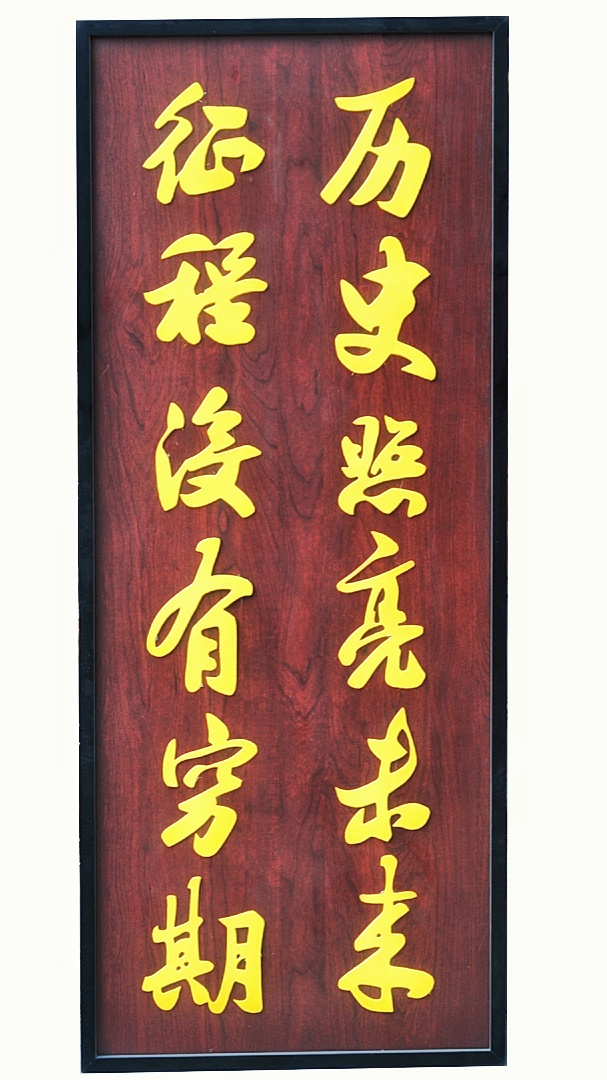 历史照亮未来
征程没有穷期